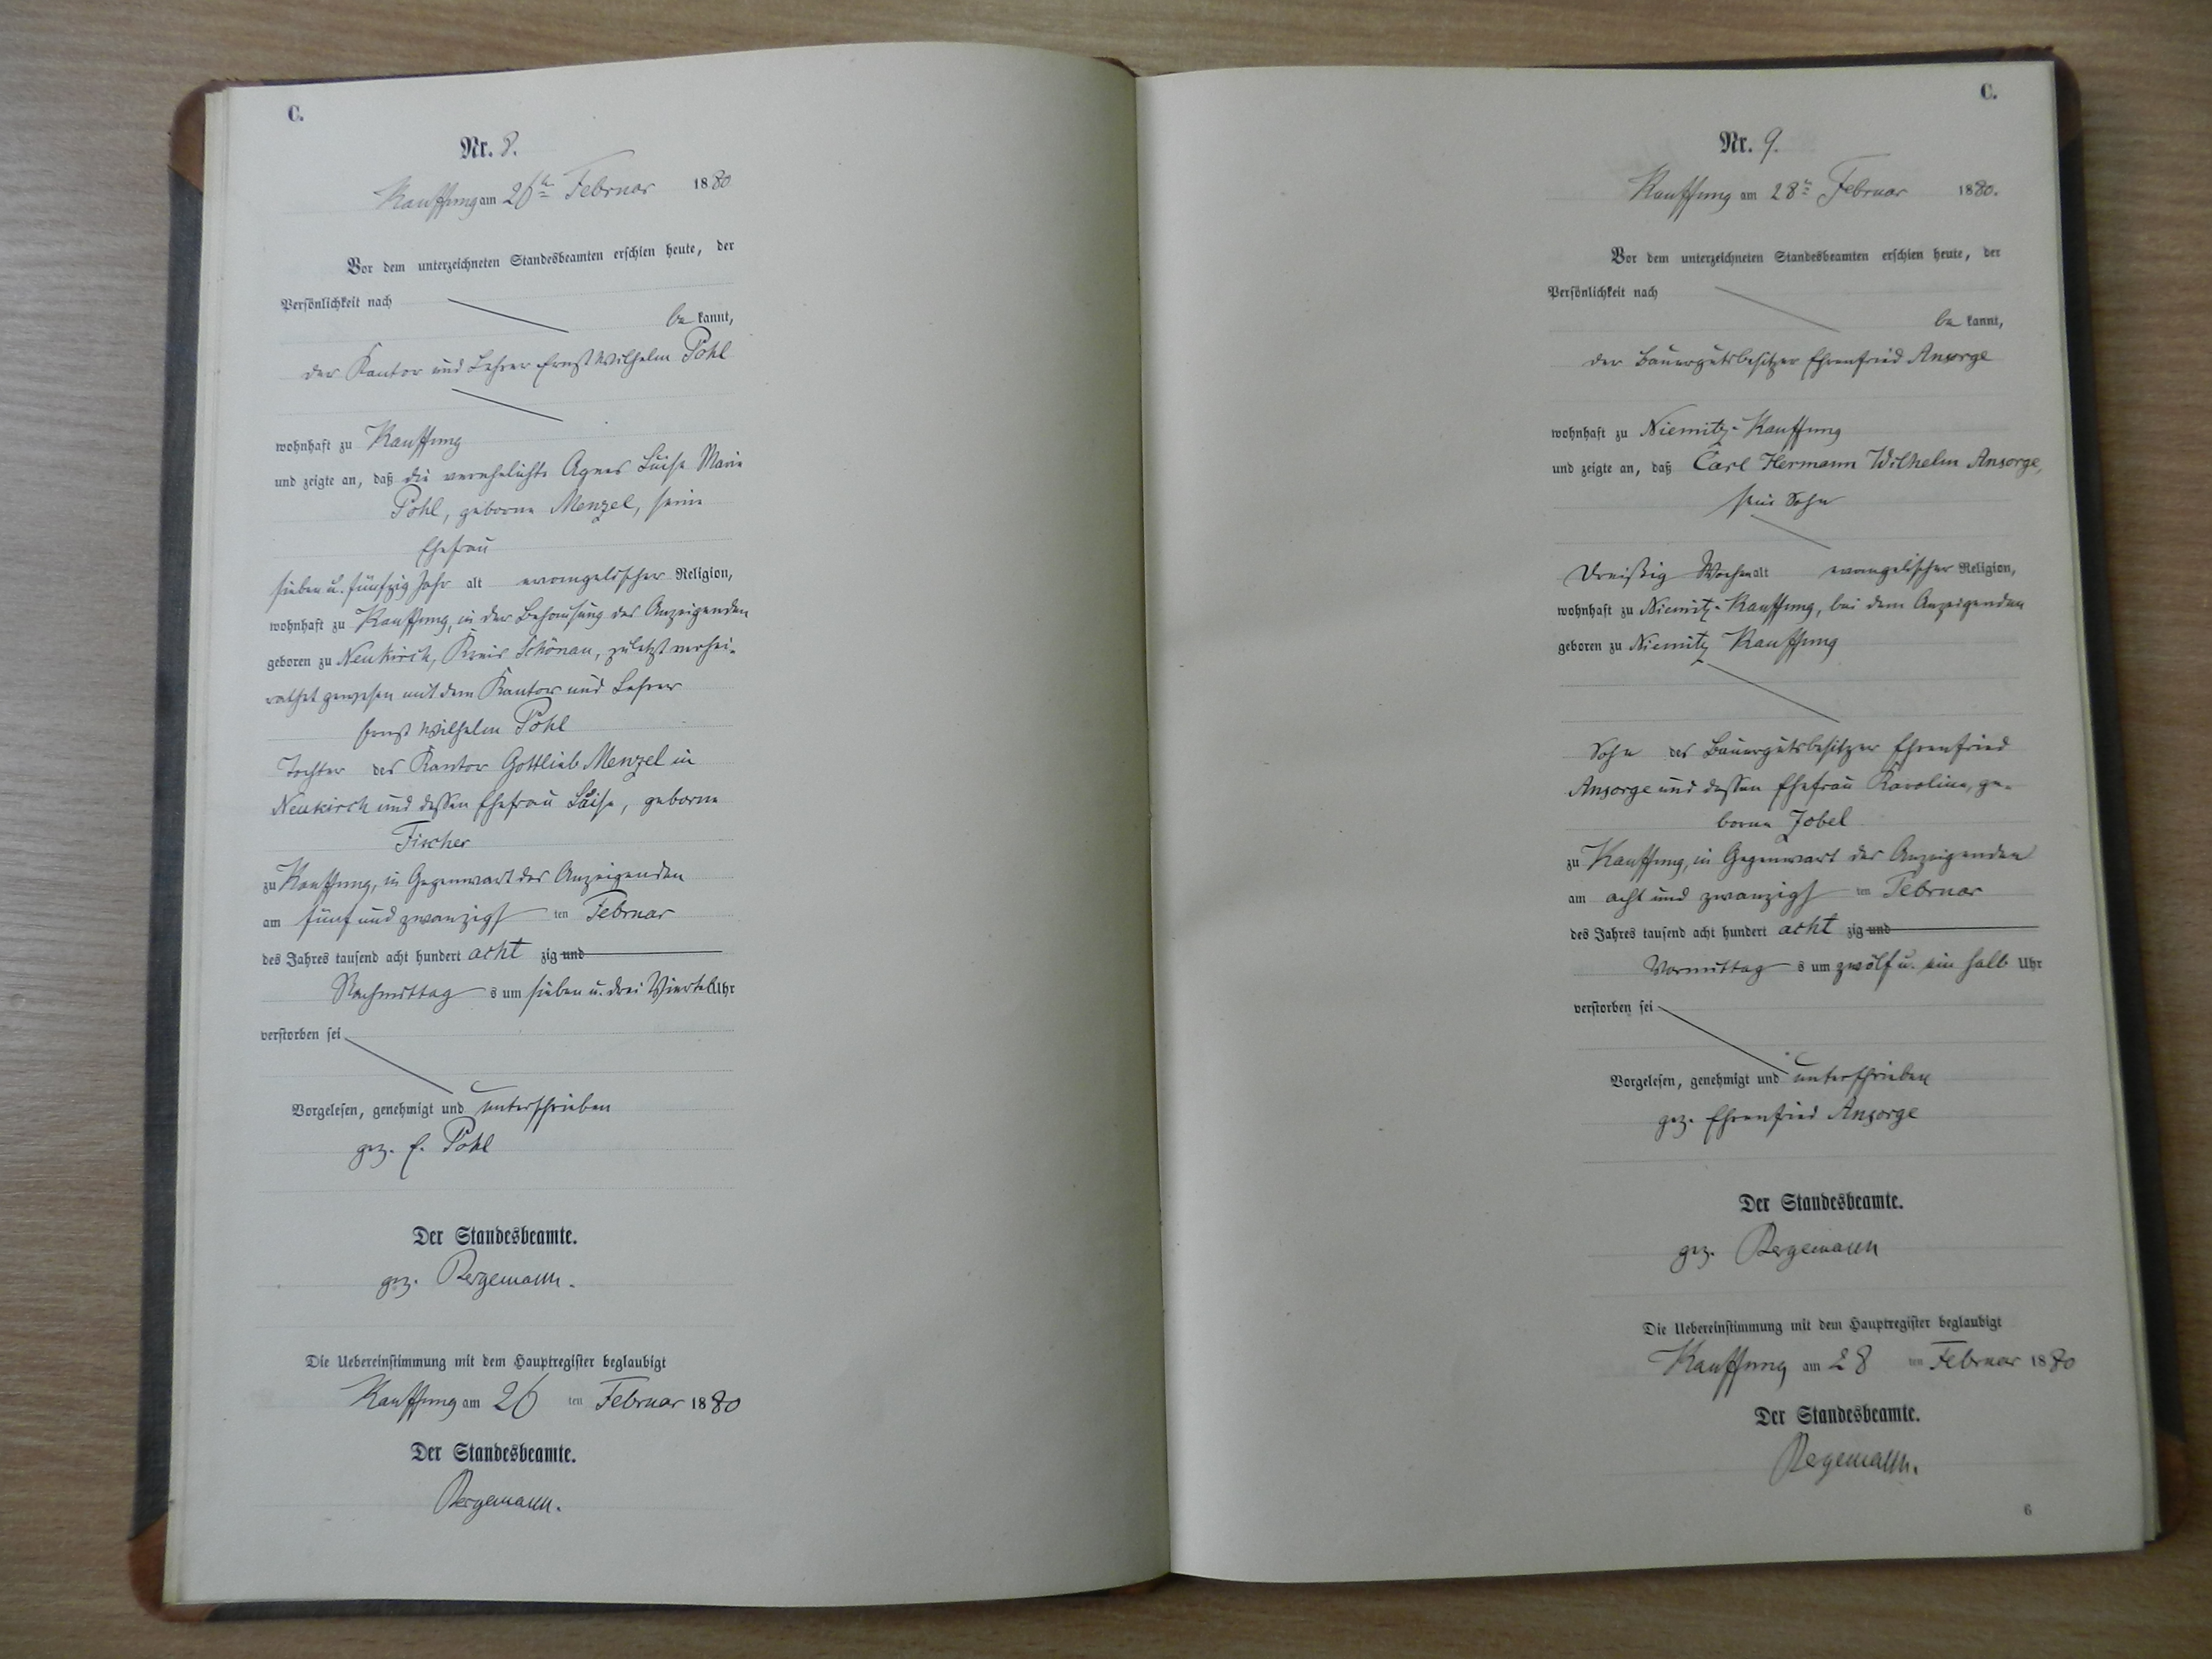 C.
Nr. 8.
Kauffung am 26ten Februar 1880
Vor dem unterzeichneten Standesbeamten erschien heute, der
Persönlichkeit nach
be kannt,
der Kantor und Lehrer Ernst Wilhelm Pohl
wohnhaft zu Kauffung
und zeigte an, daß die verehelichte Agnes Luise Marie
Pohl, geborne Menzel, seine
Ehefrau
sieben u. fünfzig Jahr alt evangelischer Religion,
wohnhaft zu Kauffung, in der Behausung des Anzeigenden
geboren zu Neukirch, Kreis Schönau, zuletzt verhei-
rathet gewesen mit dem Kantor und Lehrer
Ernst Wilhelm Pohl
Tochter des Kantor Gottlieb Menzel in
Neukirch und dessen Ehefrau Luise, geborne
Fischer
zu Kauffung, in Gegenwart des Anzeigenden
am fünf und zwanzigsten Februar
des Jahres tausend acht hundert acht zig und
Nachmittag s um sieben u. drei Viertel Uhr
verstorben sei
Vorgelesen, genehmigt und unterschrieben
gez. E. Pohl
Der Standesbeamte.
gez. Bergemann.
Die Uebereinstimmung mit dem Hauptregister beglaubigt
Kauffung am 26 ten Februar 1880
Der Standesbeamte.
Bergemann.
C.
Nr. 9.
Kauffung am 28ten Februar 1880.
Vor dem unterzeichneten Standesbeamten erschien heute, der
Persönlichkeit nach
be kannt,
der Bauergutsbesitzer Ehrenfried Ansorge
wohnhaft zu Niemitz-Kauffung
und zeigte an, daß Carl Hermann Wilhelm Ansorge,
sein Sohn
dreißig Wochen alt evangelischer Religion,
wohnhaft zu Niemitz-Kauffung, bei dem Anzeigenden
geboren zu Niemitz Kauffung
Sohn des Bauergutsbesitzer Ehrenfried
Ansorge und dessen Ehefrau Karoline, ge-
borne Jobel
zu Kauffung, in Gegenwart des Anzeigenden
am acht und zwanzigsten Februar
des Jahres tausend acht hundert acht zig und
Vormittag s um zwölf u. ein halb Uhr
verstorben sei
Vorgelesen, genehmigt und unterschrieben
gez. Ehrenfried Ansorge
Der Standesbeamte.
gez. Bergemann
Die Uebereinstimmung mit dem Hauptregister beglaubigt
Kauffung am 28 ten Februar 1880
Der Standesbeamte.
Bergemann.
6